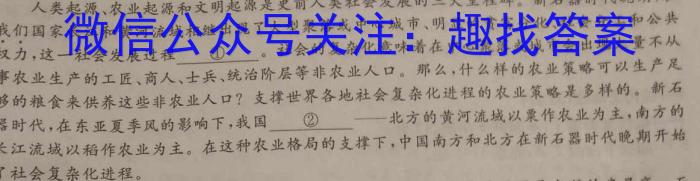 人类起源、农业起源和文明起源是史前人类社会发展的三大里程碑。新石器时代晚期，
我们国家
微信公众号关注：趣找答案
权力，这一社会发展进程 ① 。社会的复杂化意味着在
量不从
事农业生产的工匠、商人、士兵、统治阶层等非农业人口。那么，什么样的农业策略可以生产足
够的粮食来供养这些非农业人口？支撑世界各地社会复杂化进程的农业策略是多样的。新石
器时代，在东亚夏季风的影响下，我国 ② ——北方的黄河流域以粟作农业为主，南方的
长江流域以稻作农业为主。在这种农业格局的支撑下，中国南方和北方在新石器时代晚期开始
了社会复杂化进程。